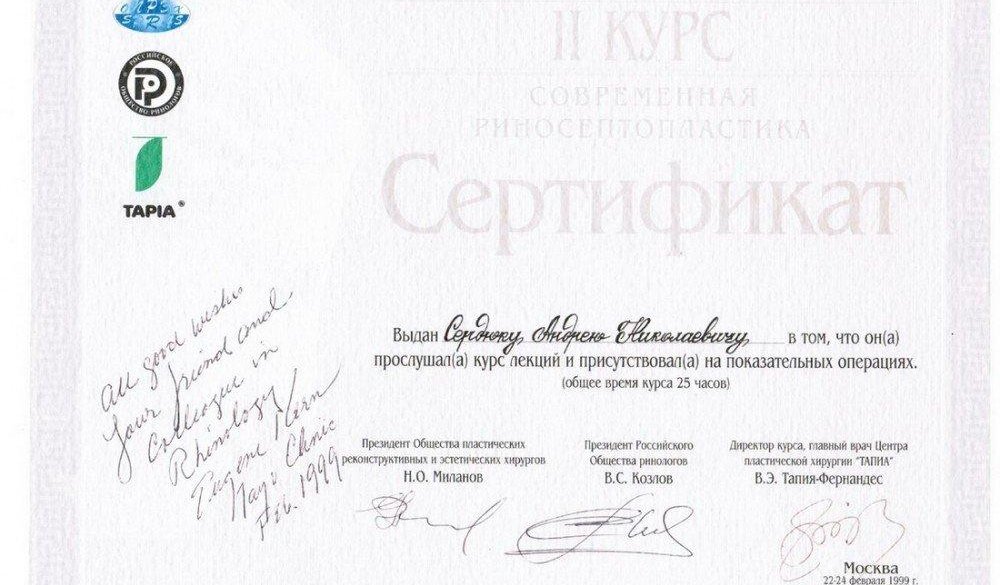 II КУРС
СОВРЕМЕННАЯ
РИНОСЕПТОПЛАСТИКА
Сертификат
РОССИЙСКОЕ
ОБЩЕСТВО РИНОЛОГОВ
TAPIA®
Выдан Сердюку Андрею Николаевичу в том, что он(а)
прослушал(а) курс лекций и присутствовал(а) на показательных операциях.
(общее время курса 25 часов)
All good wishes
Your friend and
Colleague in
Rhinology
Eugene Kern
Mayo Clinic
Feb. 1999
Президент Общества пластических
реконструктивных и эстетических хирургов
Н.О. Миланов
Президент Российского
Общества ринологов
В.С. Козлов
Директор курса, главный врач Центра
пластической хирургии "ТАПИА"
В.Э. Тапия-Фернандес
Москва
22-24 февраля 1999 г.